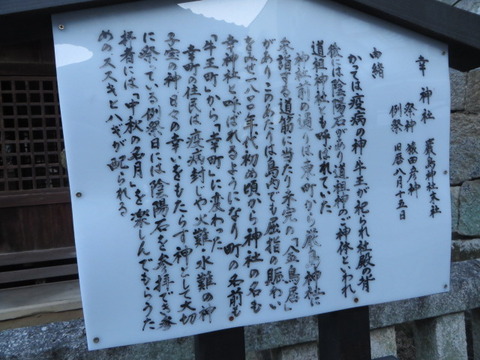 幸神社 厳島神社末社
祭神 猿田彦神
例祭 旧暦八月十五日
由緒
かつては疫病の神・牛王が祀られ社殿の背
後には陰陽石があり道祖神のご神体といわれ
道祖神社とも呼ばれていた
神社前の通りは東町から厳島神社に
参詣する道筋に当たり木宗の「金鳥居」
がありこのあたりは島内でも屈指の賑わい
一八八〇年代初め頃から神社の名も
幸神社と呼ばれるようになり町の名前も
「牛王町」から「幸町」に変わった
幸町の住民は疫病封じや火難・水難の神
子宝の神・日々の幸いをもたらす神として大切
に祭っている例祭日には陰陽石を参拝でき参
拝者には、「中秋の名月」を楽しんでもらうた
めのススキとハギが配られる